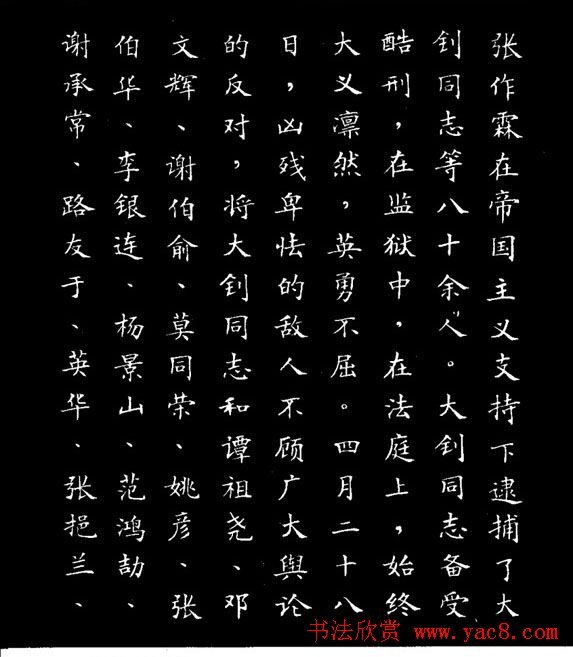 张作霖在帝国主义支持下逮捕了大
钊同志等八十余人。大钊同志备受
酷刑，在监狱中，在法庭上，始终
大义凛然，英勇不屈。四月二十八
日，凶残卑怯的敌人不顾广大舆论
的反对，将大钊同志和谭祖尧、邓
文辉、谢伯俞、莫同荣、姚彦、张
伯华、李银连、杨景山、范鸿劼、
谢承常、路友于、英华、张挹兰、
书法欣赏 www.yac8.com